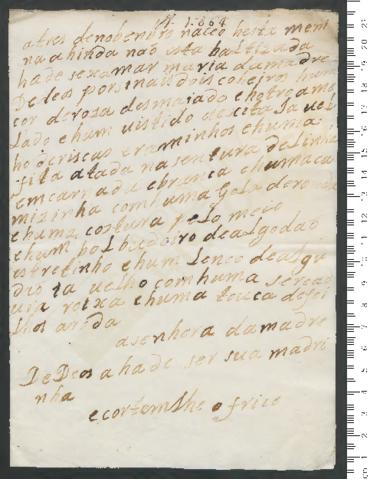 N. 1864
a tres denobenbro naceo hesta meni
na a hinda não esta bautizada
hade sexamar maria da madre
De deos por sinais dois coseiros hum
cor de rosa desmaiado e hotro ama
Lado e hum uistido de xita ja uel
ho de riscao e raminhos e huma
fita atada na sentura de Linha
emcarnada e branca e huma ca
mizinha com huma gola de
e huma costura pelo meio
e hum de algodão
estreitinho e hum Lenco de algu
dão ja uelho com huma
roixa e huma touca de fo
lhos
a senhora da madre
De Deos a hade ser sua madri
nha
e cortemlhe o